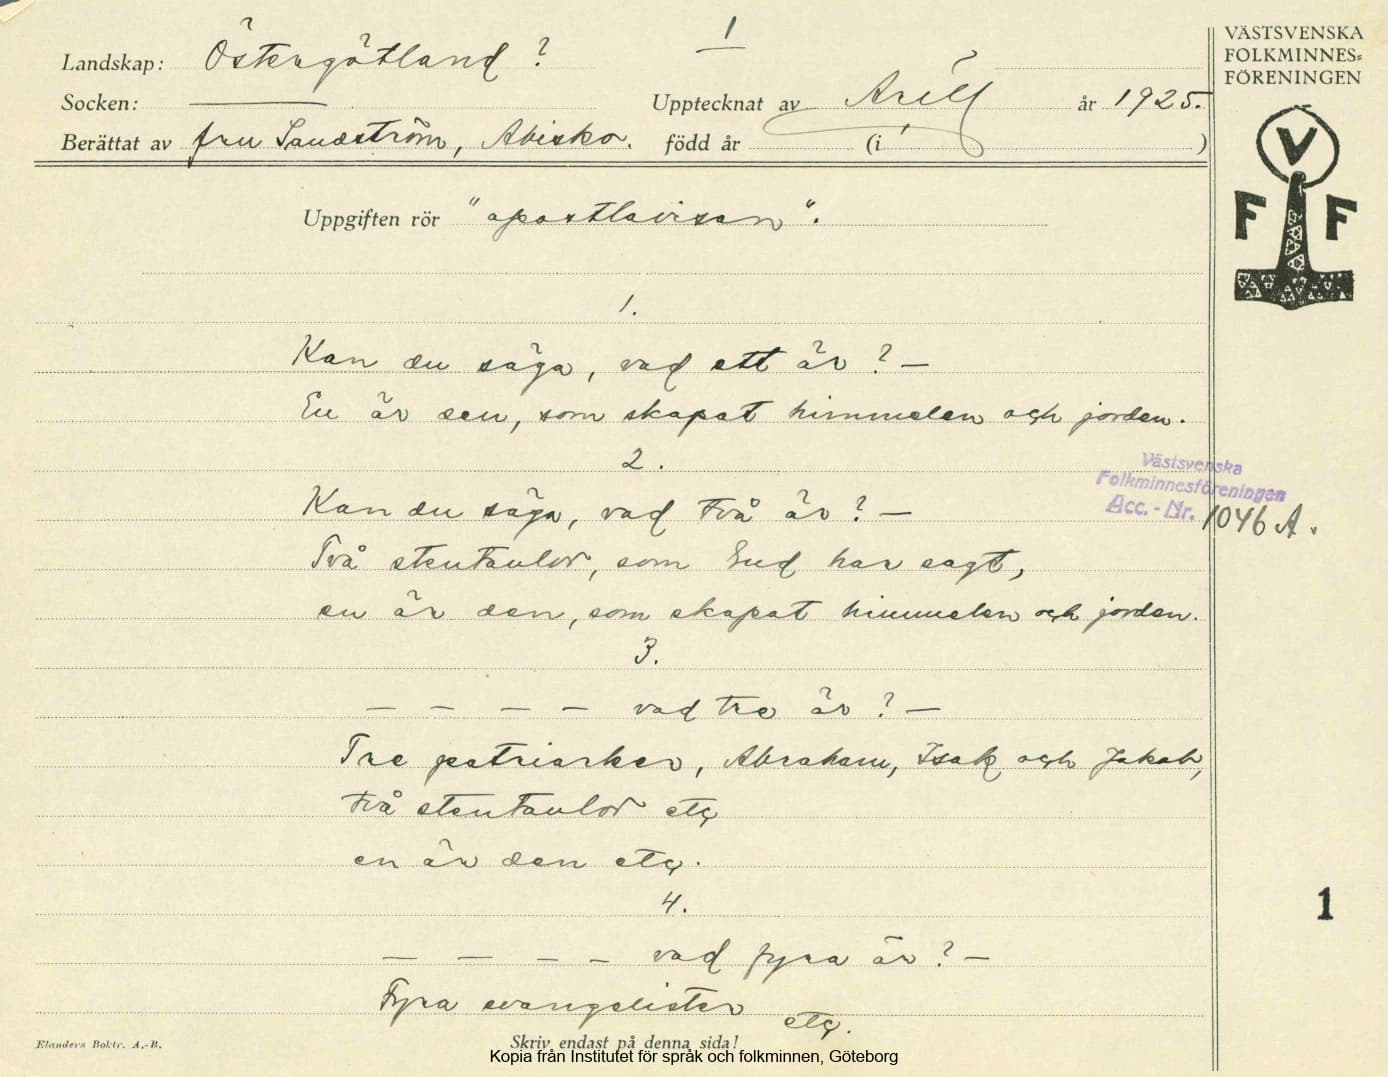 1
Landskap: Östergötland ?
Socken: ———
Upptecknat av Arill år 1925.
Berättat av fru Sandström, Abisko. född år (i )
Uppgiften rör "apostlavisan".
1.
Kan du säga, vad ett är? —
En är den, som skapat himmelen och jorden.
2.
Kan du säga, vad två är? —
Två stentavlor, som Gud har sagt,
en är den, som skapat himmelen och jorden.
3.
— — — — vad tre är? —
Tre patriarker, Abraham, Isak och Jakob,
två stentavlor etc
en är den etc.
4.
— — — — vad fyra är? —
Fyra evangelister etc.
Elanders Boktr. A.-B.
Skriv endast på denna sida!
Kopia från Institutet för språk och folkminnen, Göteborg
VÄSTSVENSKA
FOLKMINNES=
FÖRENINGEN
V
F F
Västsvenska
Folkminnesföreningen
Acc. - Nr. 1046 A.
1